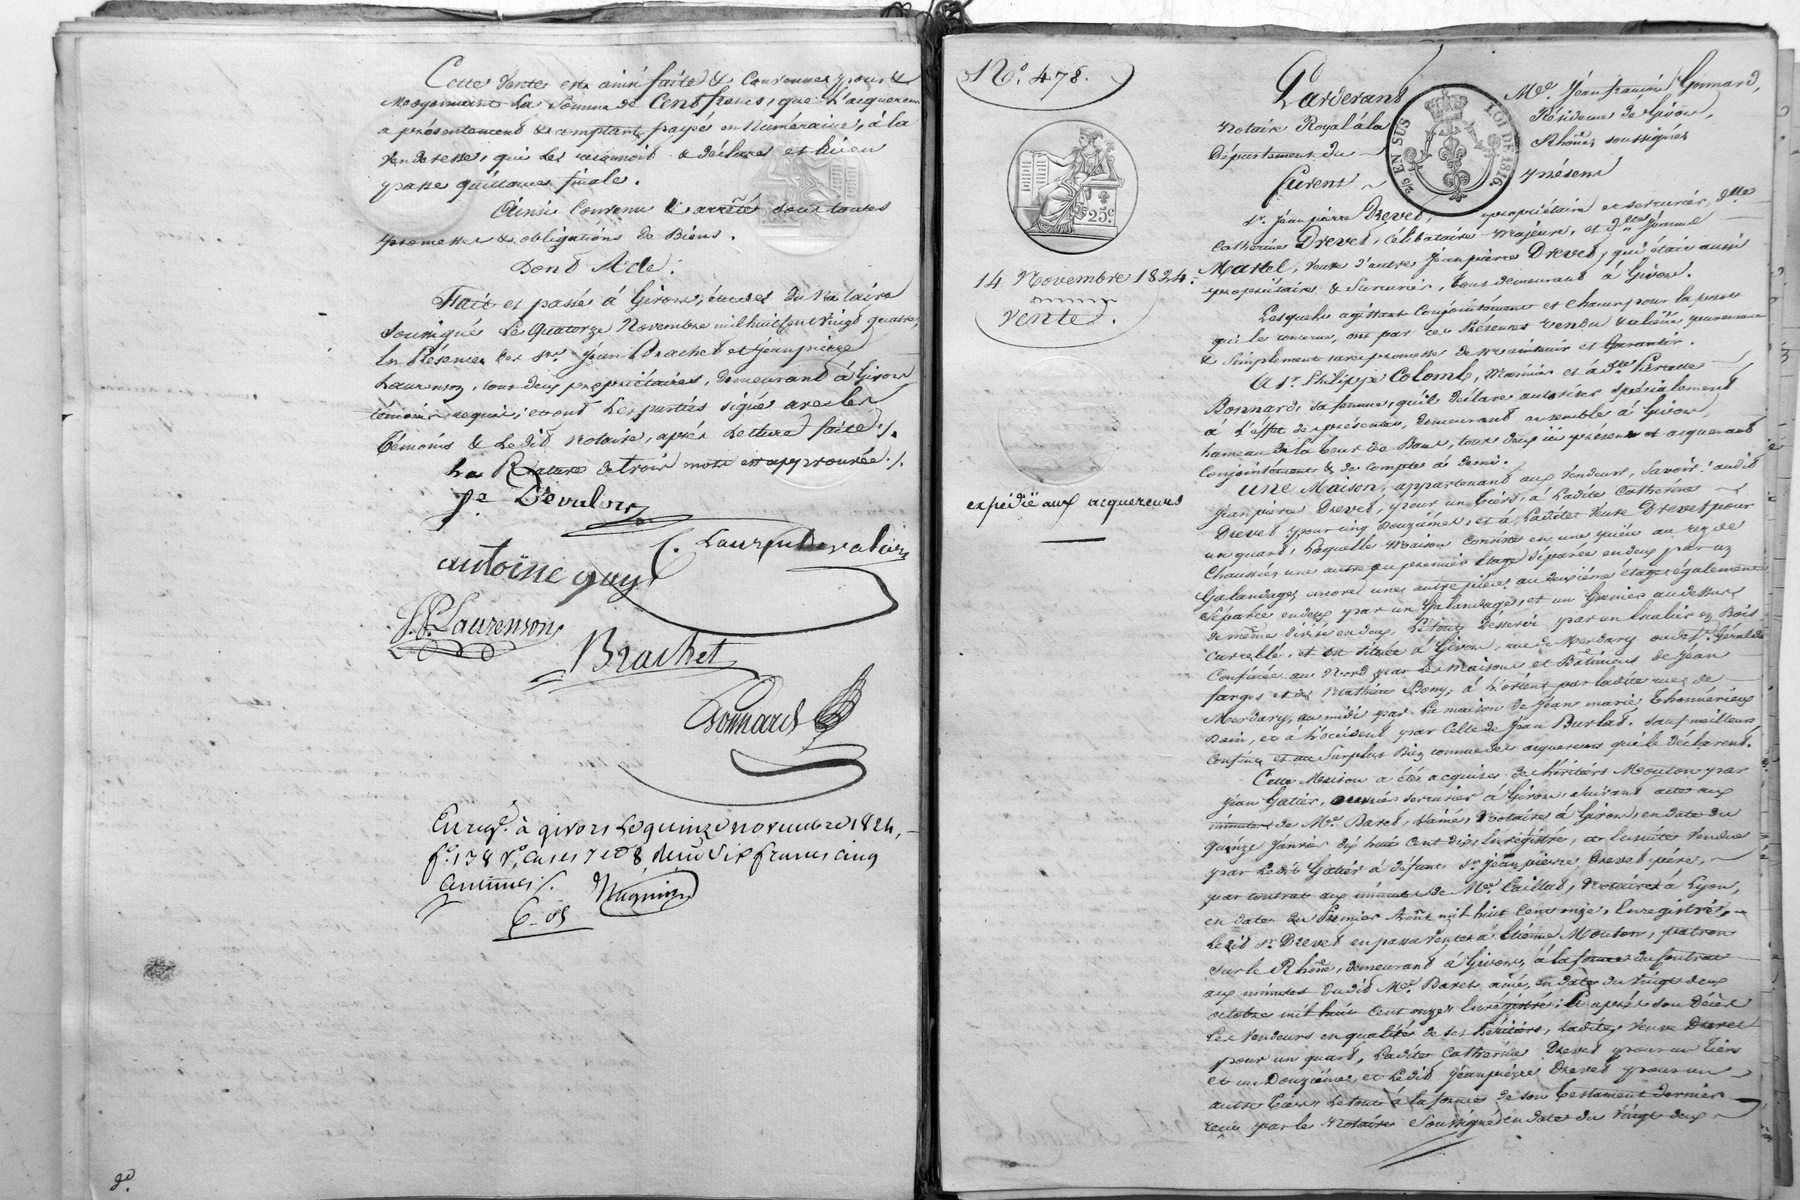 Cette vente est ainsi faite & convenue, pour &
moyennant la somme de Cent francs, que l'acquereur
a présentement & comptant payée en numéraire, à la
venderesse, qui les reconnoit & déclare et lui en
passe quittance finale.
Ainsi convenu & arrêté sous toutes
promesses & obligations de Biens.
Dont Acte.
Fait et passé à Givors, étude du Notaire
soussigné le quatorze Novembre mil huit cent vingt quatre,
en Présence des srs. Jean Brachet et Jean pierre
Laurenson, tous deux propriétaires, demeurant à Givors
témoins requis; et ont les parties signé avec les
témoins & ledit notaire, après Lecture faite ./.
La Rature de trois mots est approuvée ./.
antoine guy
J. P. Laurenson
Brachet
Bonnard
Enreg. à givors le quinze novembre 1824,
fo. 138 Vo. cases 7 et 8 Reçu six francs cinq
centimes ./.
6-05
2e.
No. 478.
25c
14 Novembre 1824.
Vente.
expédié aux acquereurs
2/5 EN SUS
LOI DE 1816.
Pardevant Me. Jean françois Bonnard,
Notaire Royal à la Résidence de Givors,
Département du Rhône, soussigné
furent présens
sr. Jean pierre Drevet, propriétaire et serrurier, dlle
Catherine Drevet, célibataire majeure, et d. Jeanne
Martel, veuve d'autre Jean pierre Drevet, qui étoit aussi
propriétaire & serrurier, tous demeurant à Givors.
Lesquels agissant conjointement et chacun pour la part
qui les concerne, ont par ces Présentes vendu & cédé purement
& simplement avec promesse de maintenir et garantir.
A sr. Philippe Colomb, Marinier et à de. Pierrette
Bonnard, sa femme, qu'il déclare autoriser spécialement
à l'effet des présentes, demeurant ensemble à Givors,
hameau de la Tour de Bans, tous deux ici présens et acquerant
conjointement & de compte à demi.
Une Maison, appartenant aux vendeurs, savoir: audit
Jean pierre Drevet, pour un tiers, à ladite Catherine
Drevet pour cinq douzièmes, et à ladite veuve Drevet pour
un quart, laquelle maison consiste en une pièce au rez de
chaussée une autre au premier étage séparée en deux par un
Galandage, encore une autre pièce au deuxième étage également
séparée en deux par un Galandage, et un Grenier au dessus
de même divisé en deux, le tout desservi par un Escalier en Bois
et est située à Givors, rue de Merdary ou de st. Gérald
Confinée au Nord par les maisons et Bâtimens de Jean
farges et de Mathieu Bony, à l'orient par ladite rue de
Merdary, au midi par la maison de Jean marie Thomérieux
et à l'occident par Celle de Jean Burlat. sauf meilleurs
confins et au surplus Bien connue des acquereurs qui le déclarent.
Cette Maison a été acquise de héritiers Mouton par
Jean Gatier, serrurier à Givors, suivant acte aux
minutes de Me. Baret, l'ainé, Notaire à Givors, en date du
quinze Janvier dix huit cent dix Enregistré, et ensuite vendue
par Ledit Gatier à défunt sr. Jean pierre Drevet père,
par contrat aux minutes de Me. Caillat, Notaire à Lyon,
en date du Premier Août mil huit cent onze, Enregistré,
Ledit sr. Drevet en passa vente à Etienne Mouton, patron
sur le Rhône, demeurant à Givors, à la forme du contrat
aux minutes dudit Me. Baret ainé, en date du vingt deux
octobre mil huit cent onze, Enregistré: Et après son décès
les vendeurs en qualité de ses héritiers, Ladite veuve Drevet
pour un quart, Ladite Catherine Drevet pour un tiers
et un Douzième, et Ledit Jean pierre Drevet pour un
autre tiers, le tout à la forme de son testament dernier
reçu par le Notaire Soussigné en date du vingt deux